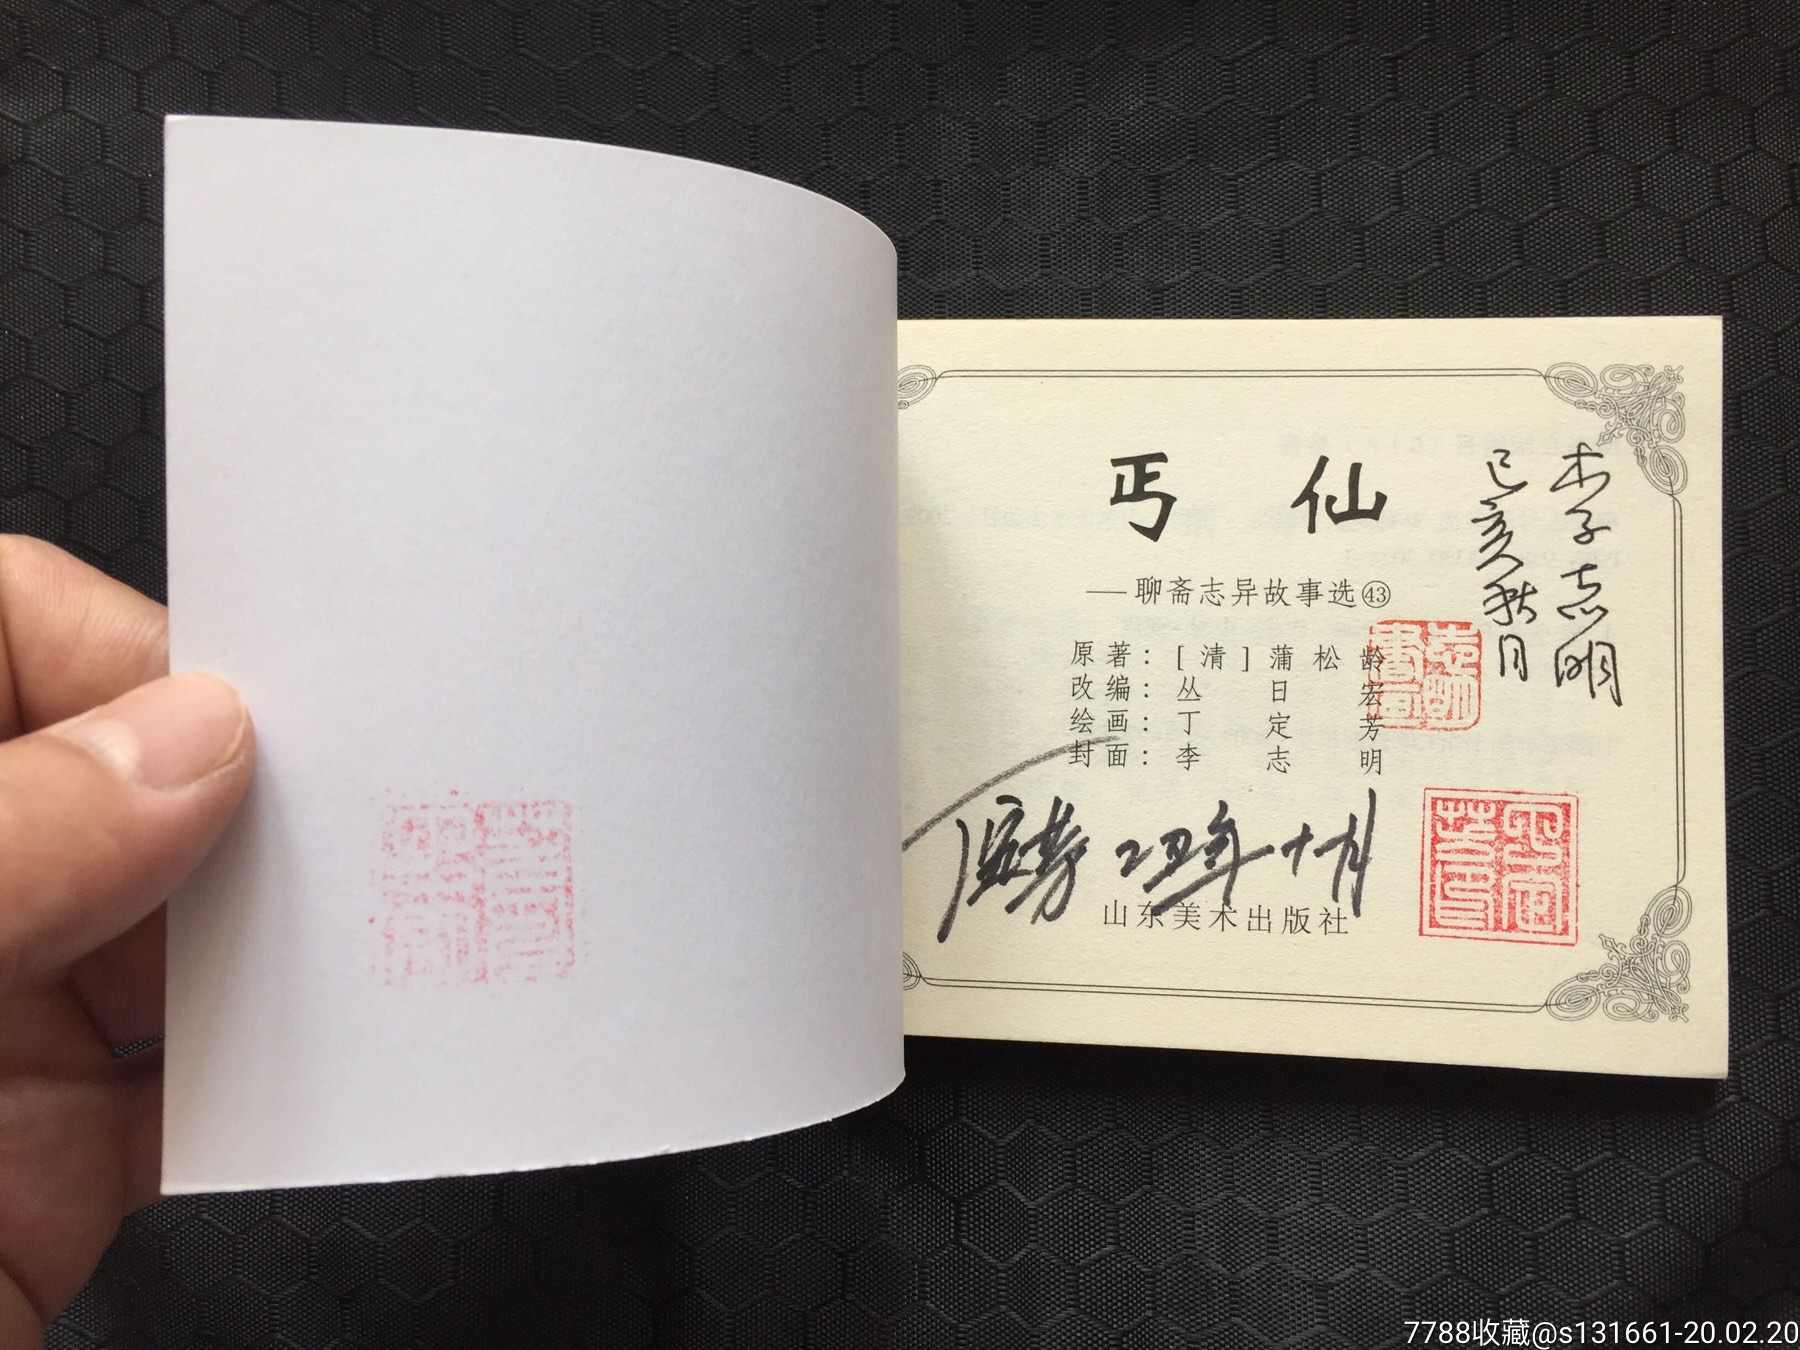 丐仙
——聊斋志异故事选㊸
原著：[清]蒲松龄
改编：丛日宏
绘画：丁定芳
封面：李志明
山东美术出版社
李志明
己亥秋月
定芳 己丑年十月
志明書画
丁定芳印
7788收藏@s131661-20.02.20